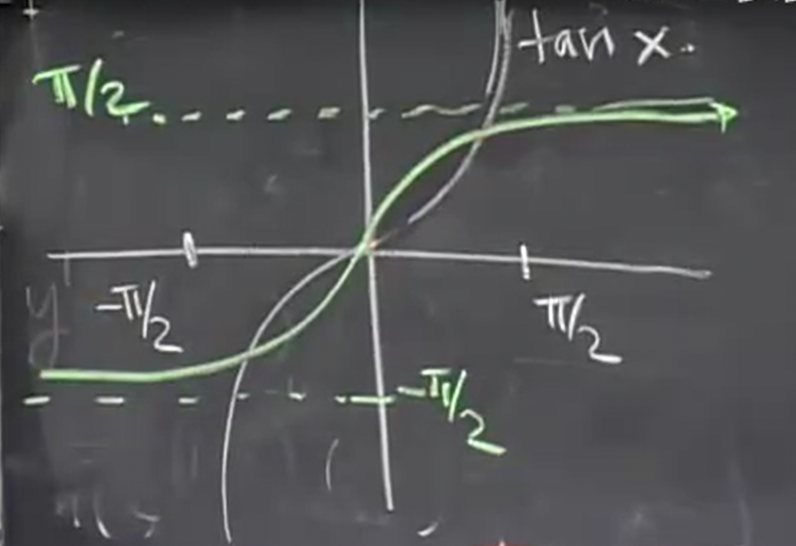 tan x
π/2
-π/2
π/2
-π/2